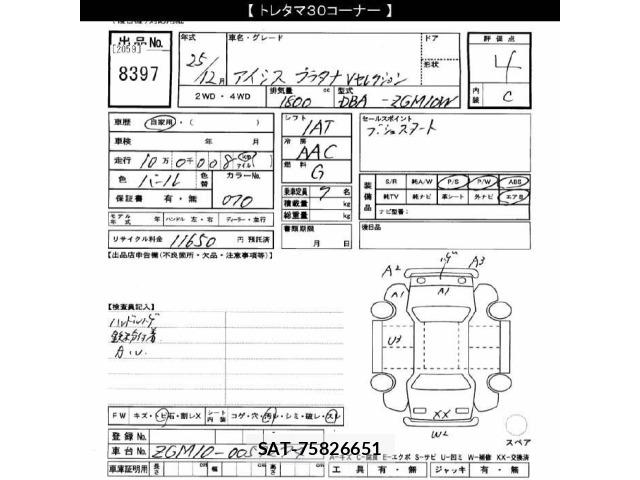 【 トレタマ30コーナー 】
出品No.
[2059]
8397
年式
25/12月
車名・グレード
アイシス プラタナ Vセレクション
ドア
形状
2WD・4WD
排気量
1800
cc
型式
DBA -ZGM10W
評価点
4
内装
C
車歴
自家用・( )
車検 年 月
走行 10万0千008 km マイル
色 パール
色替
カラーNo.
070
保証書 有・無
モデル年式 年 ハンドル 左・右 ディーラー・並行
リサイクル料金 11650 円 預託済
シフト
IAT
冷房
AAC
燃料
G
乗車定員 7 名
積載量 kg
総重量 kg
書類期限
月 日
セールスポイント
プッシュスタート
装備品
S/R 純A/W P/S P/W ABS
純TV 純ナビ 革シート 外ナビ エアB
ナビ型番:
後日品
【出品店申告欄(不良箇所・欠品・注意事項等)】
【検査員記入】
A2
A3
A1
A1
U3
XX
W2
スペア
FW キズ・トビ石・割レX
シート内装
コゲ・穴・汚レ・シミ・破レ・スレ
登録No.
車台No.
ZGM10-005
SAT-75826651
車庫証明用
長さ cm
幅 cm
高さ cm
A-キズ E-エクボ S-サビ U-凹ミ W-補修 XX-交換済
工具 有・無
ジャッキ 有・無